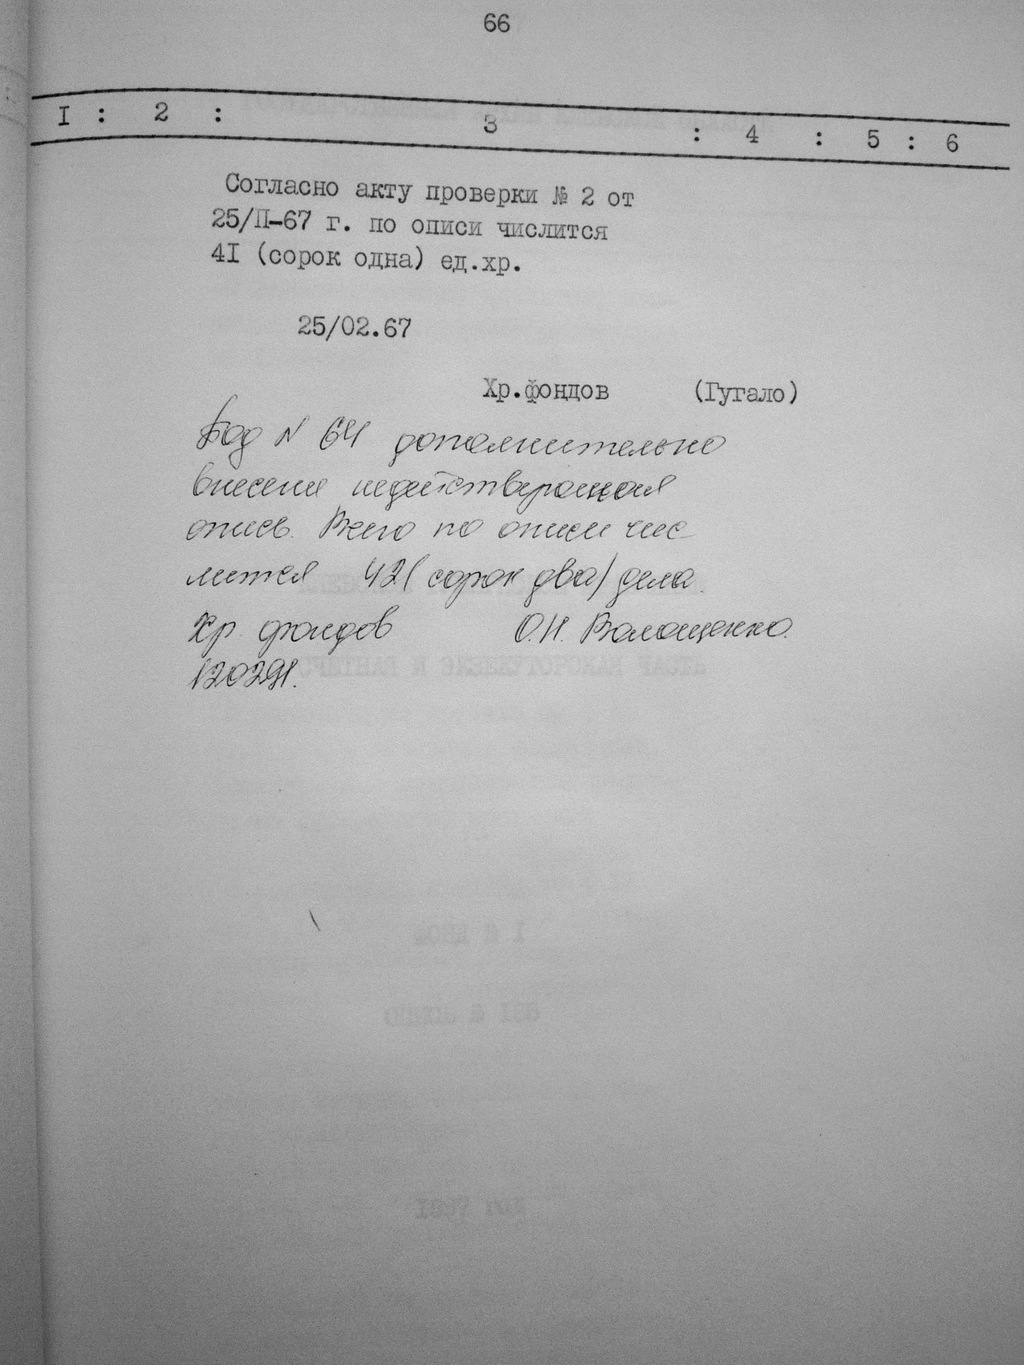 66
I : 2 : 3 : 4 : 5 : 6
Согласно акту проверки № 2 от
25/II-67 г. по описи числится
4I (сорок одна) ед.хр.
25/02.67
Хр.фондов (Гугало)
Под N 64 дополнительно
внесена недействующая
опись. Всего по описи чис-
лится 42 (сорок два) дела.
Хр. фондов О.Н. Волощенко.
120291.